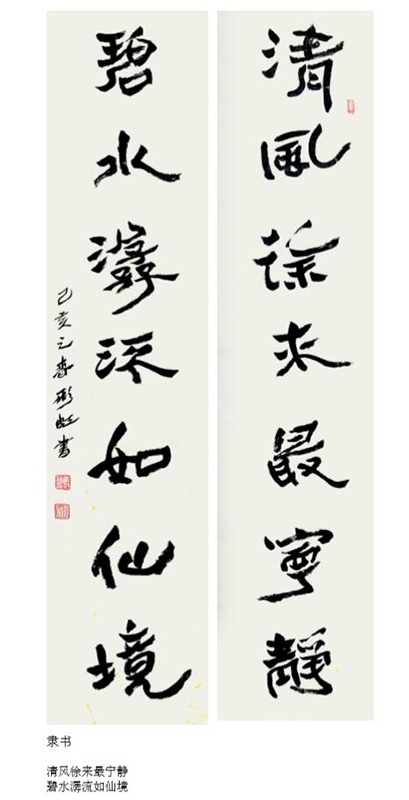 清風徐来最寧靜
碧水潺流如仙境
己亥之春
書
隶书
清风徐来最宁静
碧水潺流如仙境